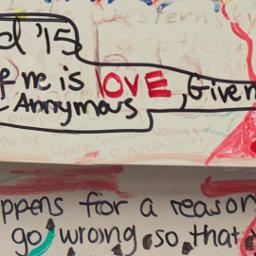 d '15
e me is lOVE, Given
- Annymous
ppens for a reason
go wrong so that